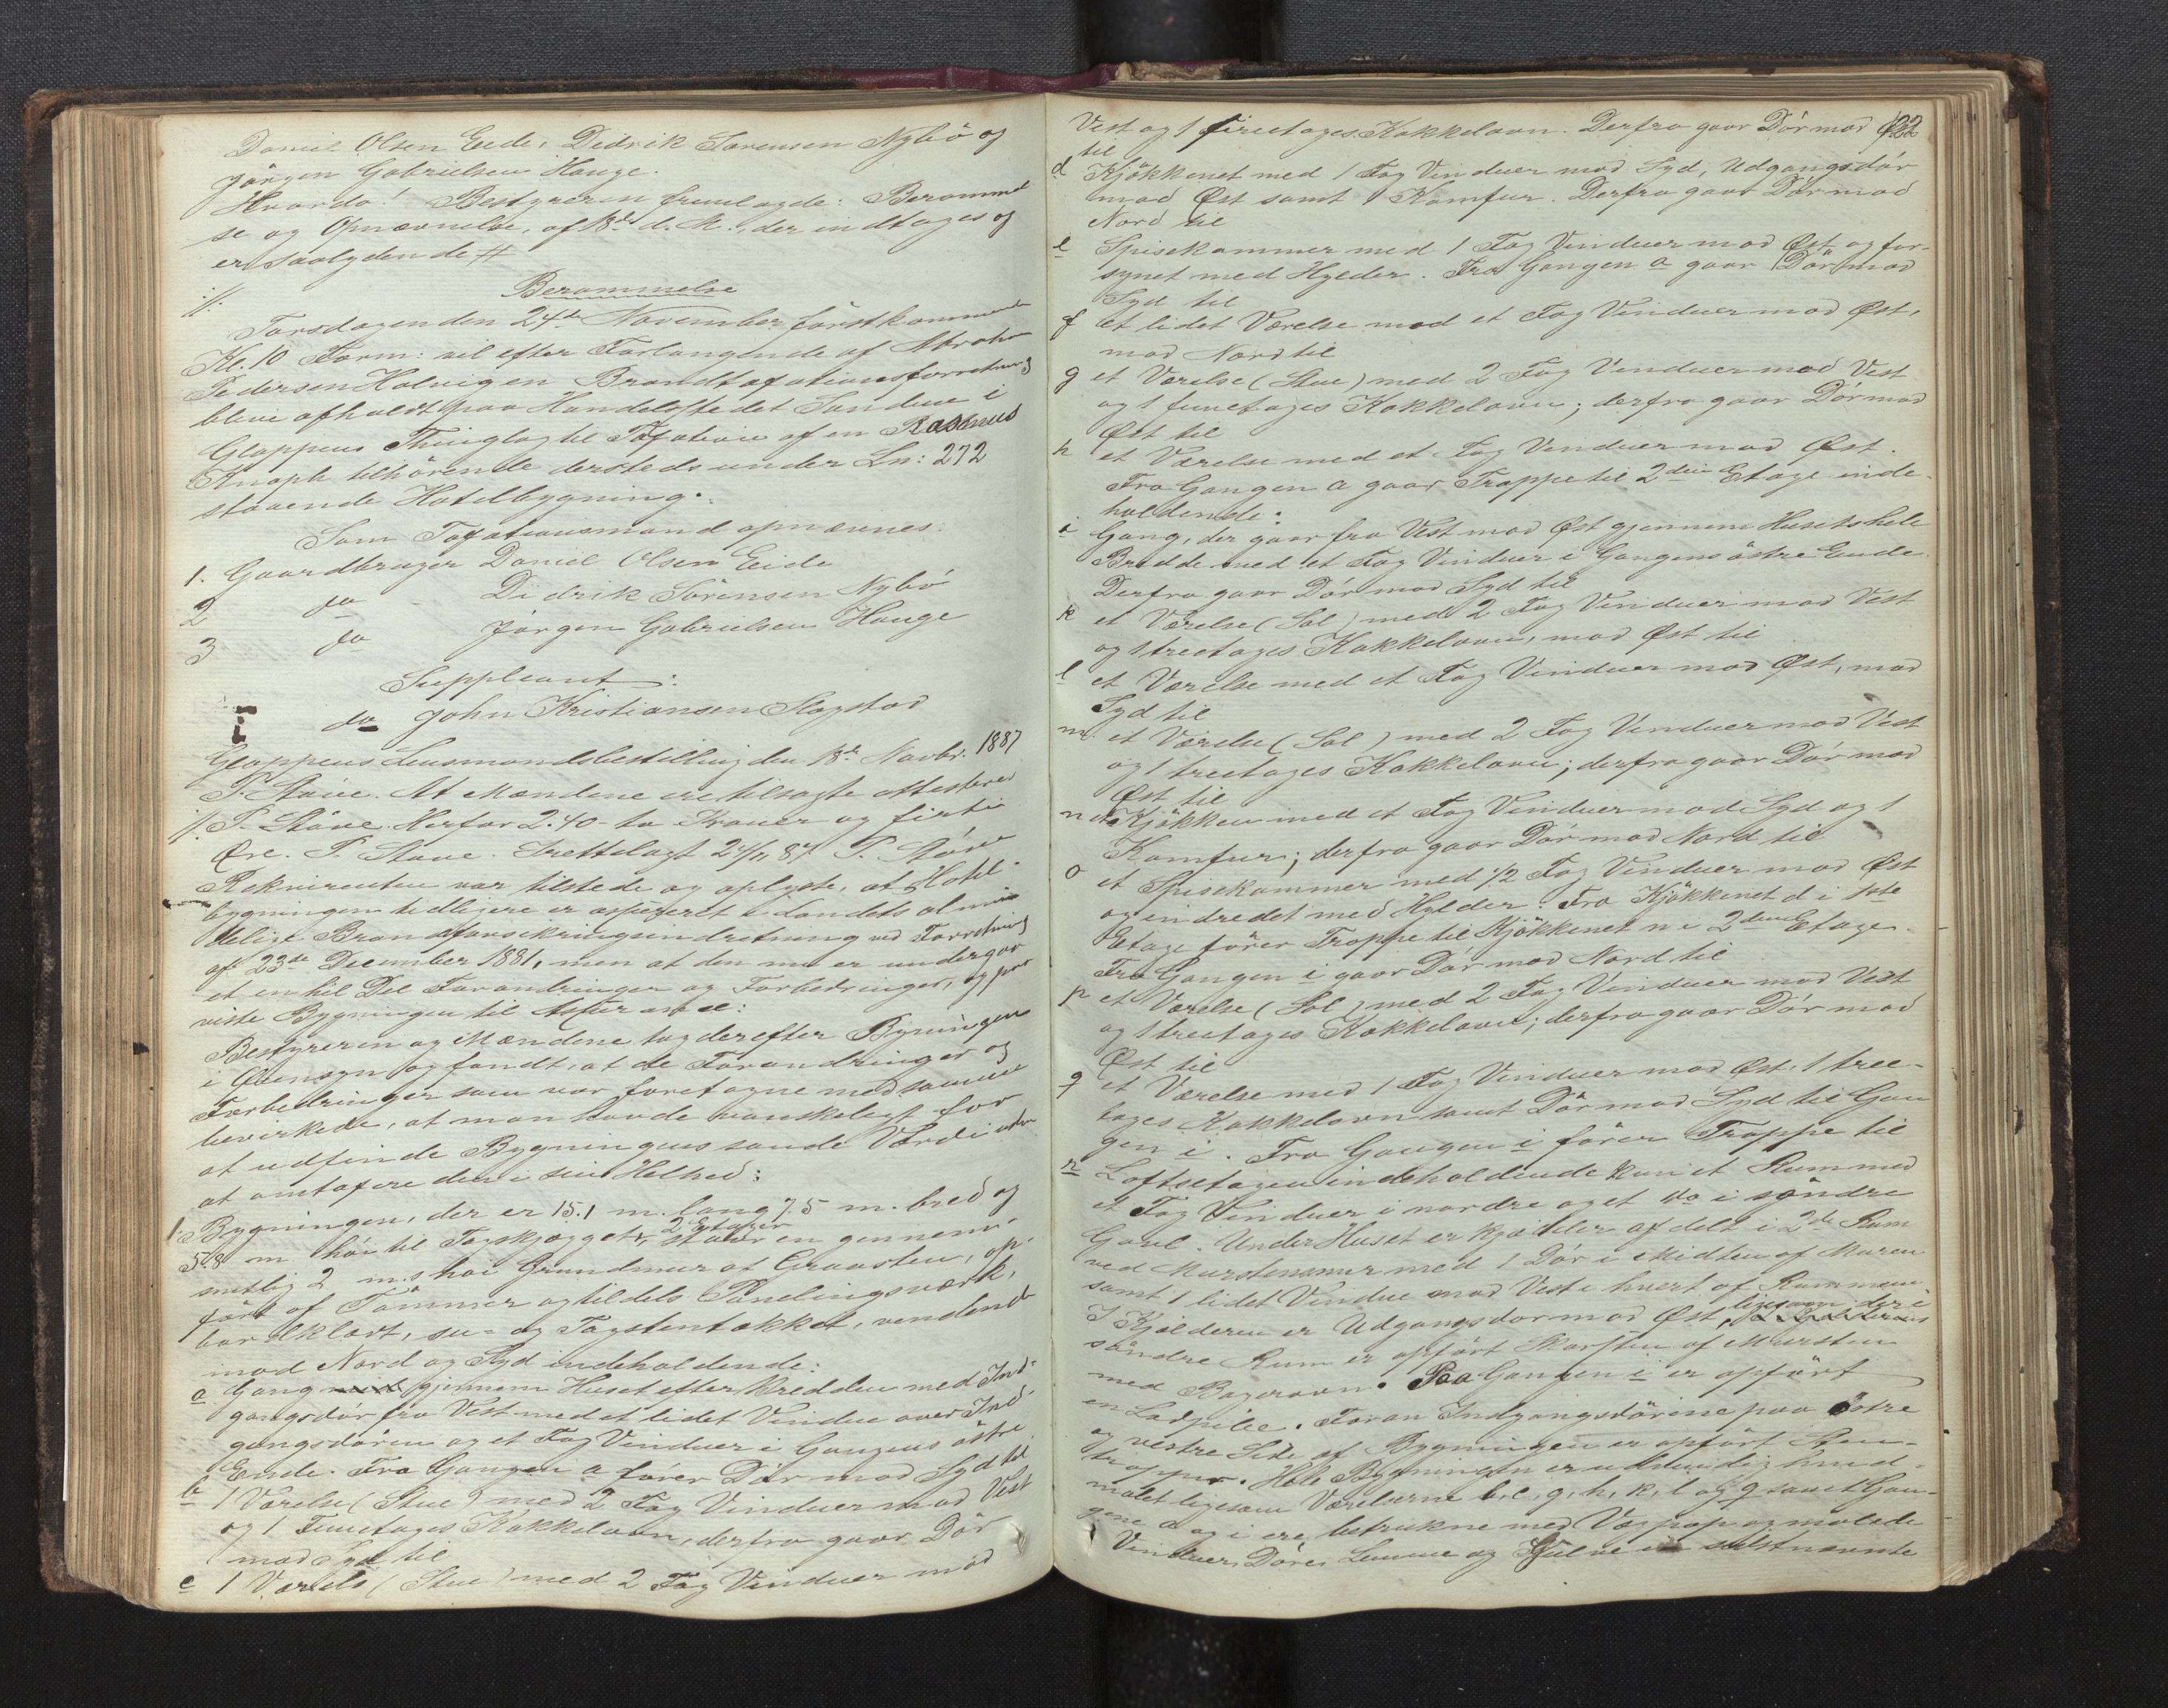 Daniel Olsen Eide, Didrik Sørensen Nybö og
Jörgen Gabrielsen Hauge.
Hvorda! Bestyreren fremlagde: Berammel
se og Opnævnelse, af 18de d. M., der indtages og
er saalydende #
:/: Berammelse
Torsdagen den 24de November förstkommende
Kl. 10 Form: vil efter Forlangende af Abraham
Pedersen Holvigen Brandtaxationsforretning
blive afholdt paa Handelsstedet Sandene i
Gloppens Thinglag til Taxation af en Rasmus
Knaph tilhörende dersteds under Ln: 272
staaende Hotelbygning.
Som Taxationsmænd opnævnes:
1. Gaardbruger Daniel Olsen Eide
2 do Didrik Sörensen Nybö
3 do Jörgen Gabrielsen Hauge
Suppleant:
do John Kristiansen Slagstad
Gloppens Lensmandsbestilling den 18de Novbr: 1887
T. Støve. At Mændene ere tilsagte attesteres
:/: T. Støve. Herfor 2.40 - to Kroner og firti
Øre. T. Støve. Irettelagt 24/11 87 T. Støve
Rekvirenten var tilstede og oplyste, at Hotel-
bygningen tidligere er assureret i Landets almin
delige Brandforsikringsindretning ved Forretning
af 23de December 1881, men at den nu er undergaa
et en hel Del Forandringer og Forbedringer, og paa
viste Bygningen til Assurance:
Bestyreren og Mændene tog derefter Bygningen
i Øiensyn og fandt, at de Forandringer og
Forbedringer som var foretagne med samme
bevirkede, at man havde vanskeligt for
at udfinde Bygningens sande Værdi uden
at omtaxere den i sin Helhed:
1. Bygningen, der er 15.1 m. lang 7.5 m. bred og
5.8 m. höi til Tagskjægget, 2 Etager staar en gennem-
snitlig 2 m.s höi Grundmur af Graasten, op-
fört af Tömmer og tildels Panelingsværk,
bordklædt, su- og Tagstentækket, vendende
mod Nord og Syd indeholdende:
a Gang gjennem Huset efter Bredden med Ind-
gangsdör fra Vest med et lidet Vindue over Ind-
gangsdören og et Fag Vinduer i Gangens østre
Ende. Fra Gangen a förer Dör mod Syd til
b 1 Værelse (Stue) med 2 Fag Vinduer mod Vest
og 1 Femetages Kakkelovn, derfra gaar Dör
mod Syd til
c 1 Værelse (Stue) med 2 Fag Vinduer mod
Vest og 1 fireetages Kakkelovn. Derfra gaar Dör mod Øst 122
til
d Kjökkenet med 1 Fag Vinduer mod Syd, Udgangsdör
mod Øst samt 1 Komfur. Derfra gaar Dör mod
Nord til
e Spisekammer med 1 Fag Vinduer mod Øst og for-
synet med Hylder. Fra Gangen a gaar Dör mod
Syd til
f et lidet Værelse med et Fag Vinduer mod Øst,
mod Nord til
g et Værelse (Stue) med 2 Fag Vinduer mod Vest
og 1 femetages Kakkelovn; derfra gaar Dör mod
Øst til
h et Værelse med et Fag Vinduer mod Øst.
Fra Gangen a gaar Trappe til 2den Etage inde-
holdende:
i Gang, der gaar fra Vest mod Øst gjennem Husets hele
Bredde med et Fag Vinduer i Gangens östre Ende.
Derfra gaar Dör mod Syd til
k et Værelse (Sal) med 2 Fag Vinduer mod Vest
og 1 treetages Kakkelovn, mod Øst til
l et Værelse med et Fag Vinduer mod Øst, mod
Syd til
m. et Værelse (Sal) med 2 Fag Vinduer mod Vest
og 1 treetages Kakkelovn; derfra gaar Dör mod
Øst til
n Kjökken med et Fag Vinduer mod Syd og 1
Komfur; derfra gaar Dör mod Nord til
o et Spisekammer med 1/2 Fag Vinduer mod Øst
og indredet med Hylder. Fra Kjökkenet d i 1ste
Etage förer Trappe til Kjökkenet n i 2den Etage.
Fra Gangen i gaar Dör mod Nord til
p et Værelse (Sal) med 2 Fag Vinduer mod Vest
og 1 treetages Kakkelovn; derfra gaar Dör mod
Øst til
q et Værelse med 1 Fag Vinduer mod Øst, 1 tree-
tages Kakkelovn samt Dör mod Syd til Gan
gen i. Fra Gangen i förer Trappe til
r Loftsetagen indeholdende kun et Rum med
et Fag Vinduer i nordre og et do i söndre
Gavl. Under Huset er Kjælder afdelt i 2de Rum
ved Murstensmur med 1 Dör i Midten af Muren
samt 1 lidet Vindue mod Vest i hvert af Rummene
I Kjælderen er Udgangsdör mod Øst, ligesom der i
söndre Rum er opfört Skorsten af Mursten
med Bagerovn. Paa Gangen i er opfört
en Ladpibe. Foran Indgangsdörene paa östre
og vestre Side af Bygningen er opfört Sten-
trapper. Hele Bygningen er udvendig hvid-
malet ligesom Værelserne b, c, g, h, k, l og q samt Gan-
gene a og i ere betrukne med Vægpap og malede
Vinduer, Döre, Lemme og Gulve i sidstnævnte